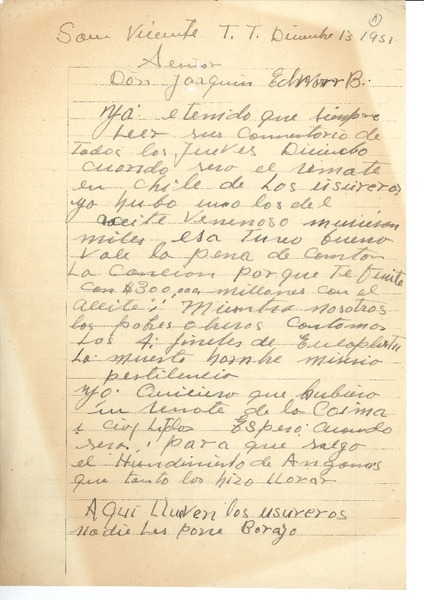 San Vicente T. T. Diciembre 13 1951
1
Señor
Don Joaquin Edwars B.
Ya e tenido que siempre
Leer sus Comentario de
todos los Jueves
cuando sera el remate
en Chile de Los usureros
ya hubo uno los del
aceite Venenoso murieron
miles esa tuvo bueno
Vale la pena de
La Cancion porque Te
con $300,000 millones con el
Aceite; Mientra nosotros
los pobres obreros
Los 4 jinetes de
La muerte hambre miseria
pestilencia
Yo: que hubiera
un remate de la
i cia Ltda Espero cuando
sera, para que salga
el Hundimiento de
que tanto los hizo LLorar
Aqui LLueven los usureros
nadie Les pone Borajo